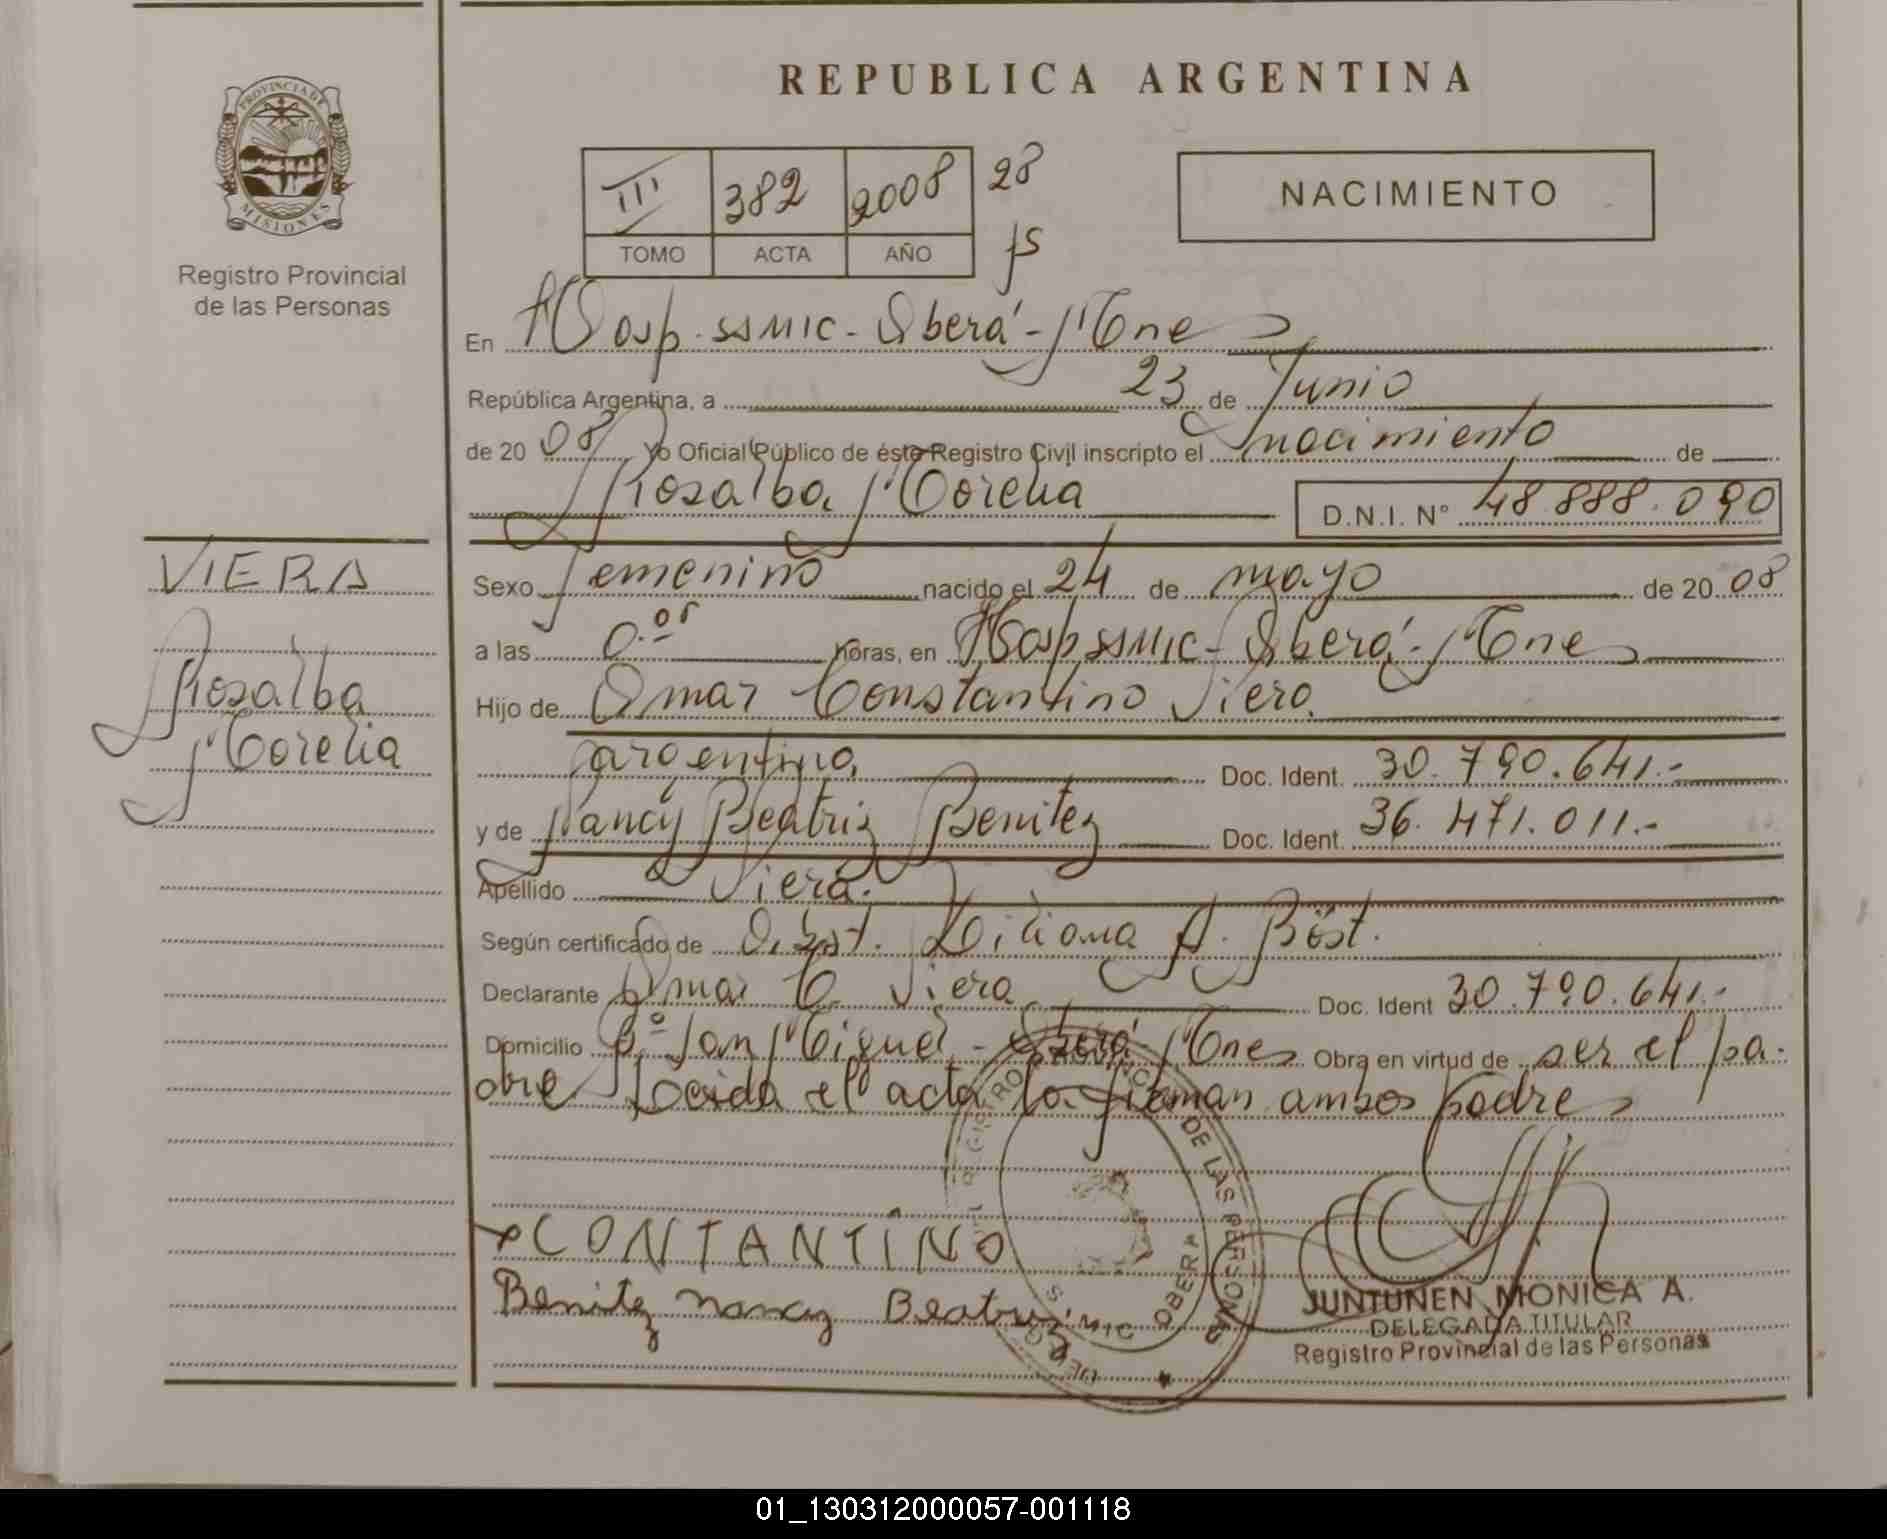 PROVINCIA DE
MISIONES
Registro Provincial
de las Personas
REPUBLICA ARGENTINA
III 382 2008 28
TOMO ACTA AÑO fs
NACIMIENTO
En Hosp. SSMIC - Oberá - Mnes
República Argentina, a 23 de Junio
de 20 08 Yo Oficial Público de éste Registro Civil inscripto el nacimiento de
Rosalba Morelia D.N.I. N° 48.888.090
VIERA
Rosalba
Morelia
Sexo femenino nacido el 24 de mayo de 20 08
a las 0.05 horas, en Hosp SSMIC - Oberá - Mnes
Hijo de Omar Constantino Viera
argentino Doc. Ident. 30.790.641.-
y de Nancy Beatriz Benitez Doc. Ident. 36.471.011.-
Apellido Viera.
Según certificado de Obst. Liliana A. Böst.
Declarante Omar C. Viera Doc. Ident 30.790.641.-
Domicilio Bº San Miguel - Oberá Mnes Obra en virtud de ser el pa-
dre Leida el acta la firman ambos padres
CONTANTINO
Benitez Nancy Beatriz
REGISTRO PROVINCIAL DE LAS PERSONAS
OBERA
JUNTUNEN MONICA A.
DELEGADA TITULAR
Registro Provincial de las Personas
01_130312000057-001118